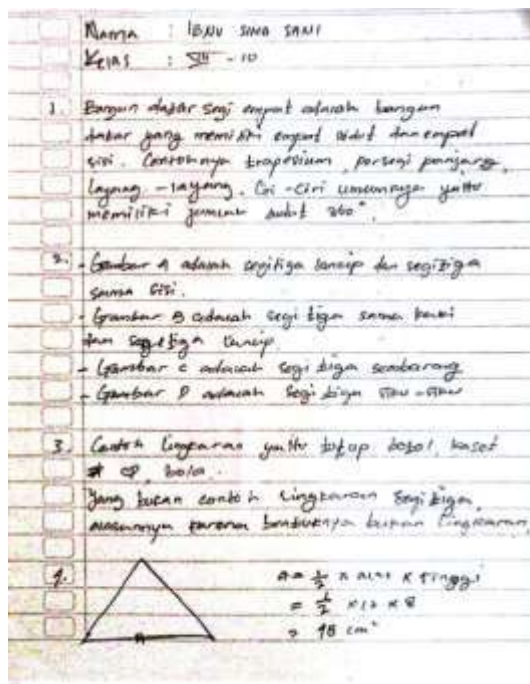 Nama : IBNU SINA SANI
Kelas : VIII - 10
1. Bangun datar segi empat adalah bangun
datar yang memiliki empat sudut dan empat
sisi. Contohnya trapesium, persegi panjang,
layang - layang. Ciri-ciri umumnya yaitu
memiliki jumlah sudut 360°.
2. - Gambar A adalah segitiga lancip dan segitiga
sama sisi.
- Gambar B adalah segi tiga sama kaki
dan segitiga lancip
- Gambar C adalah segi tiga sembarang
- Gambar D adalah segi tiga siku-siku
3. Contoh lingkaran yaitu tutup botol, kaset
bola.
Yang bukan contoh lingkaran segi tiga,
alasannya karena bentuknya bukan lingkaran
4. A = 1/2 x alas x tinggi
= 1/2 x 12 x 8
= 48 cm²